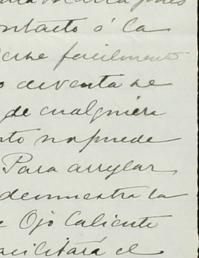 ontacto ó la
erse facilmente
o deventa se
de cualquiera
to no puede
Para arreglar
demuestra la
e Ojo Caliente
acilitará el